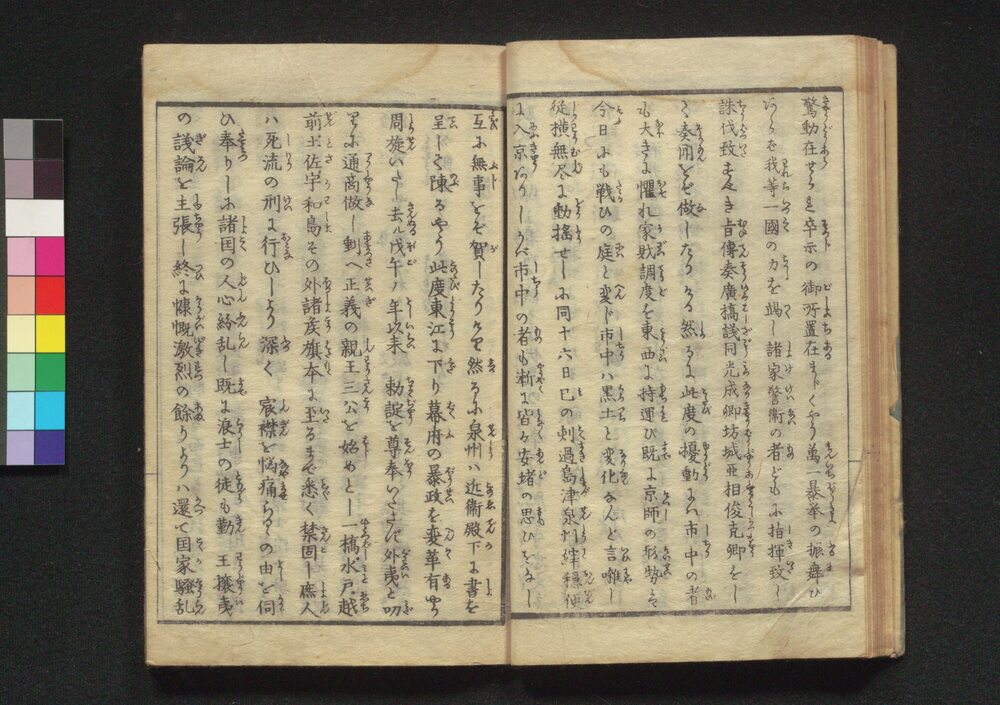 驚動在せられ卒示の御所置在まじくやう萬一暴挙の振舞ひ
あらバ我等一國の力を竭し諸家警衛の者どもに指揮致し
誅伐致すべき旨傳奏廣橋議同光成卿坊城亜相俊克卿をし
て奏聞をぞ做したりける然るに此度の擾動にハ市中の者
も大きに懼れ家財調度を東西に持運び既に京師の形勢ハ
今日にも戦ひの庭と変ド市中ハ黒土と変化なんと言囃し
従横無尽に動揺せしに同十六日巳の刻過島津泉州縡穏偵
に入京ありしかバ市中の者も漸に皆々安堵の思ひをなし
互に無事をぞ賀したりける然るに泉州ハ近衛殿下に書を
呈して陳るやう此度東江に下り幕府の暴政を変革有やう
周旋いたし去ル戊午ノ年以来勅諚を尊奉いたさず外夷と叨
りに通商做し剰へ正義の親王三公を始めとし一橋水戸越
前土佐宇和島その外諸矦旗本に至るまで悉く禁固し庶人
ハ死流の刑に行ひしより深く宸襟を悩痛らるゝの由を伺
ひ奉りしに諸国の人心紛乱し既に浪士の徒も勤王攘夷
の議論を主張し終に慷慨激烈の餘りよりハ還て国家騒乱